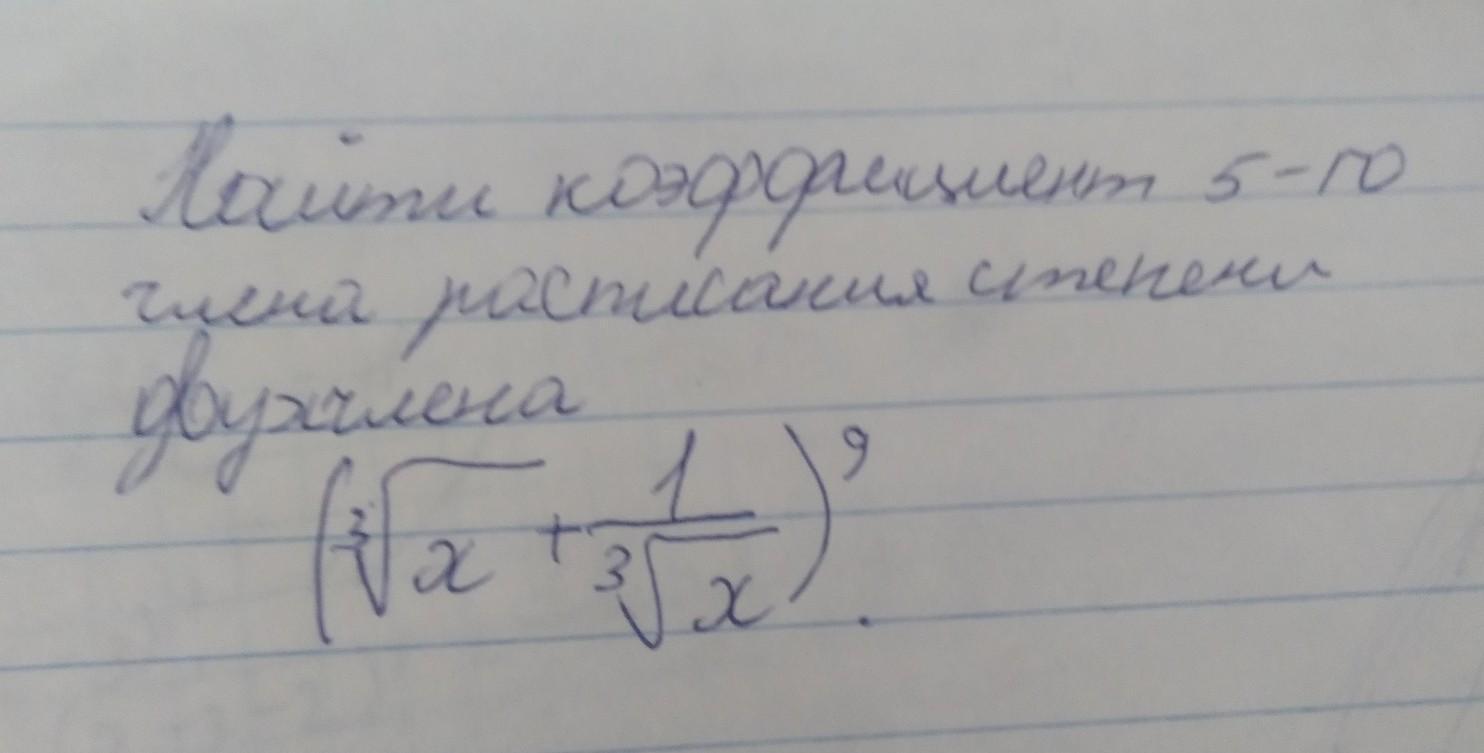 Найти коэффициент 5-го
члена расписания степени
двухчлена
(∛x + 1/∛x)⁹.